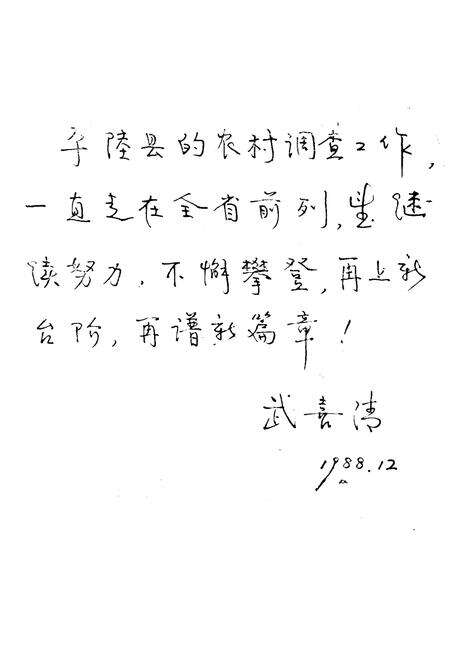 平陆县的农村调查工作，
一直走在全省前列，望继
续努力，不懈攀登，再上新
台阶，再谱新篇章！
武喜清
1988.12